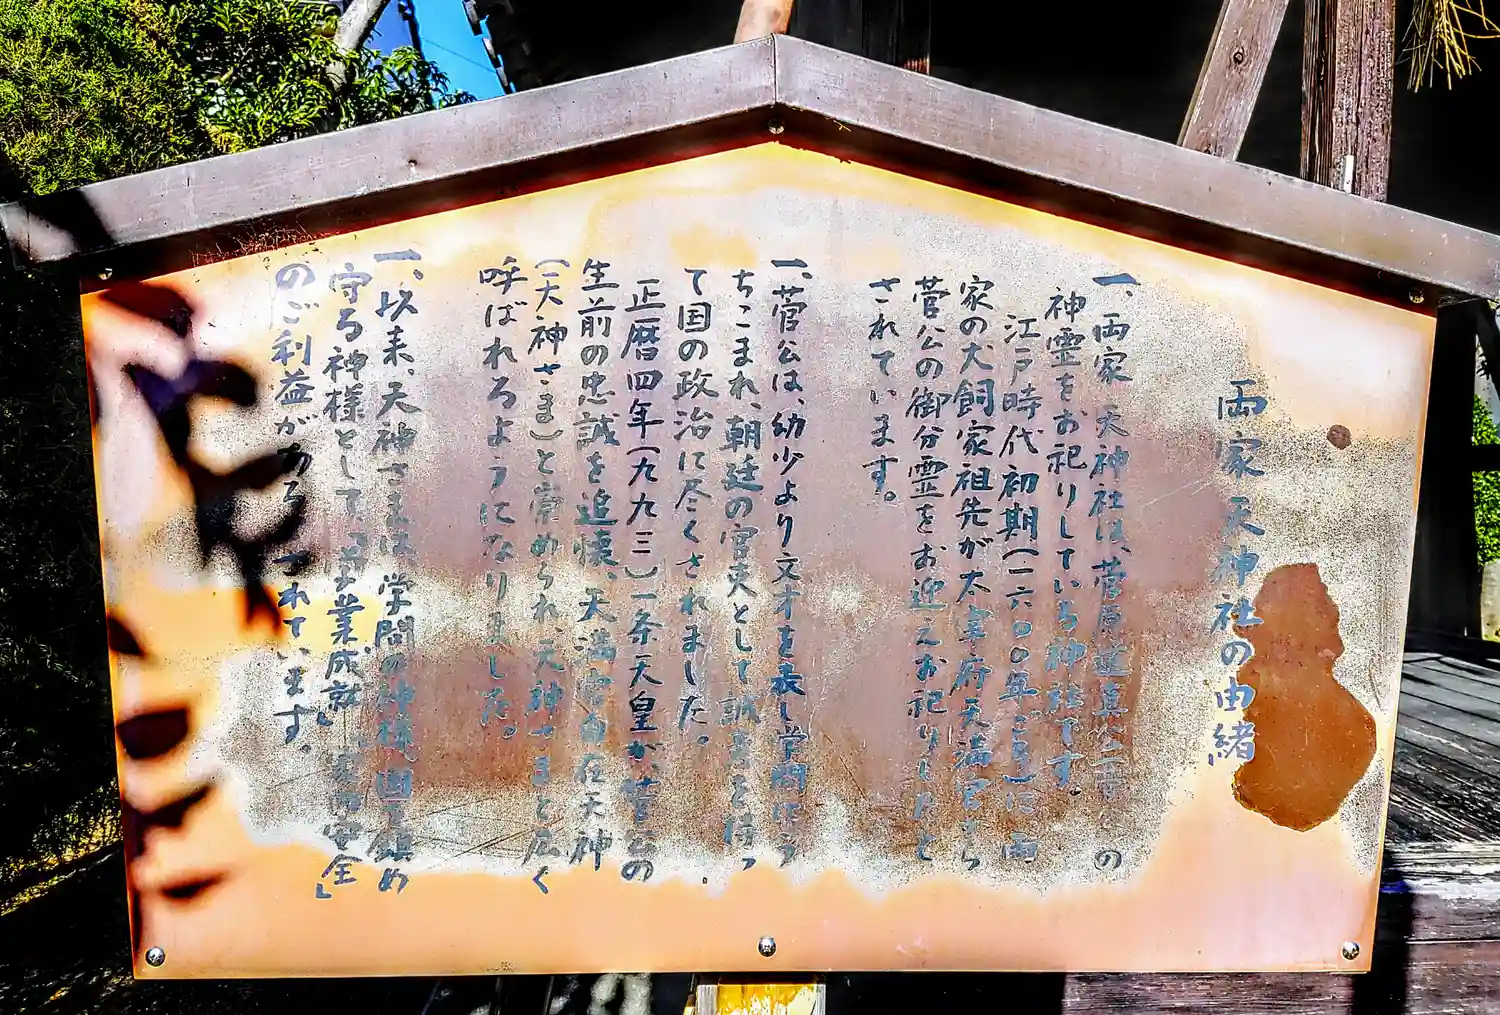 両家天神社の由緒
一、両家 天神社は、菅原道真公の
神霊をお祀りしている神社です。
江戸時代初期(一六〇〇年ごろ)に両
家の犬飼家祖先が太宰府天満宮から
菅公の御分霊をお迎えお祀りしたと
されています。
一、菅公は、幼少より文才を表し学問にう
ちこまれ、朝廷の官吏として誠意を持っ
て国の政治に尽くされました。
正暦四年(九九三)一条天皇が、菅公の
生前の忠誠を追懐、天満宮自在天神
(天神さま)と崇められ、天神さまと広く
呼ばれるようになりました。
一、以来、天神さまは、学問の神様、国を鎮め
守る神様として、「学業成就」「家内安全」
のご利益がある されています。